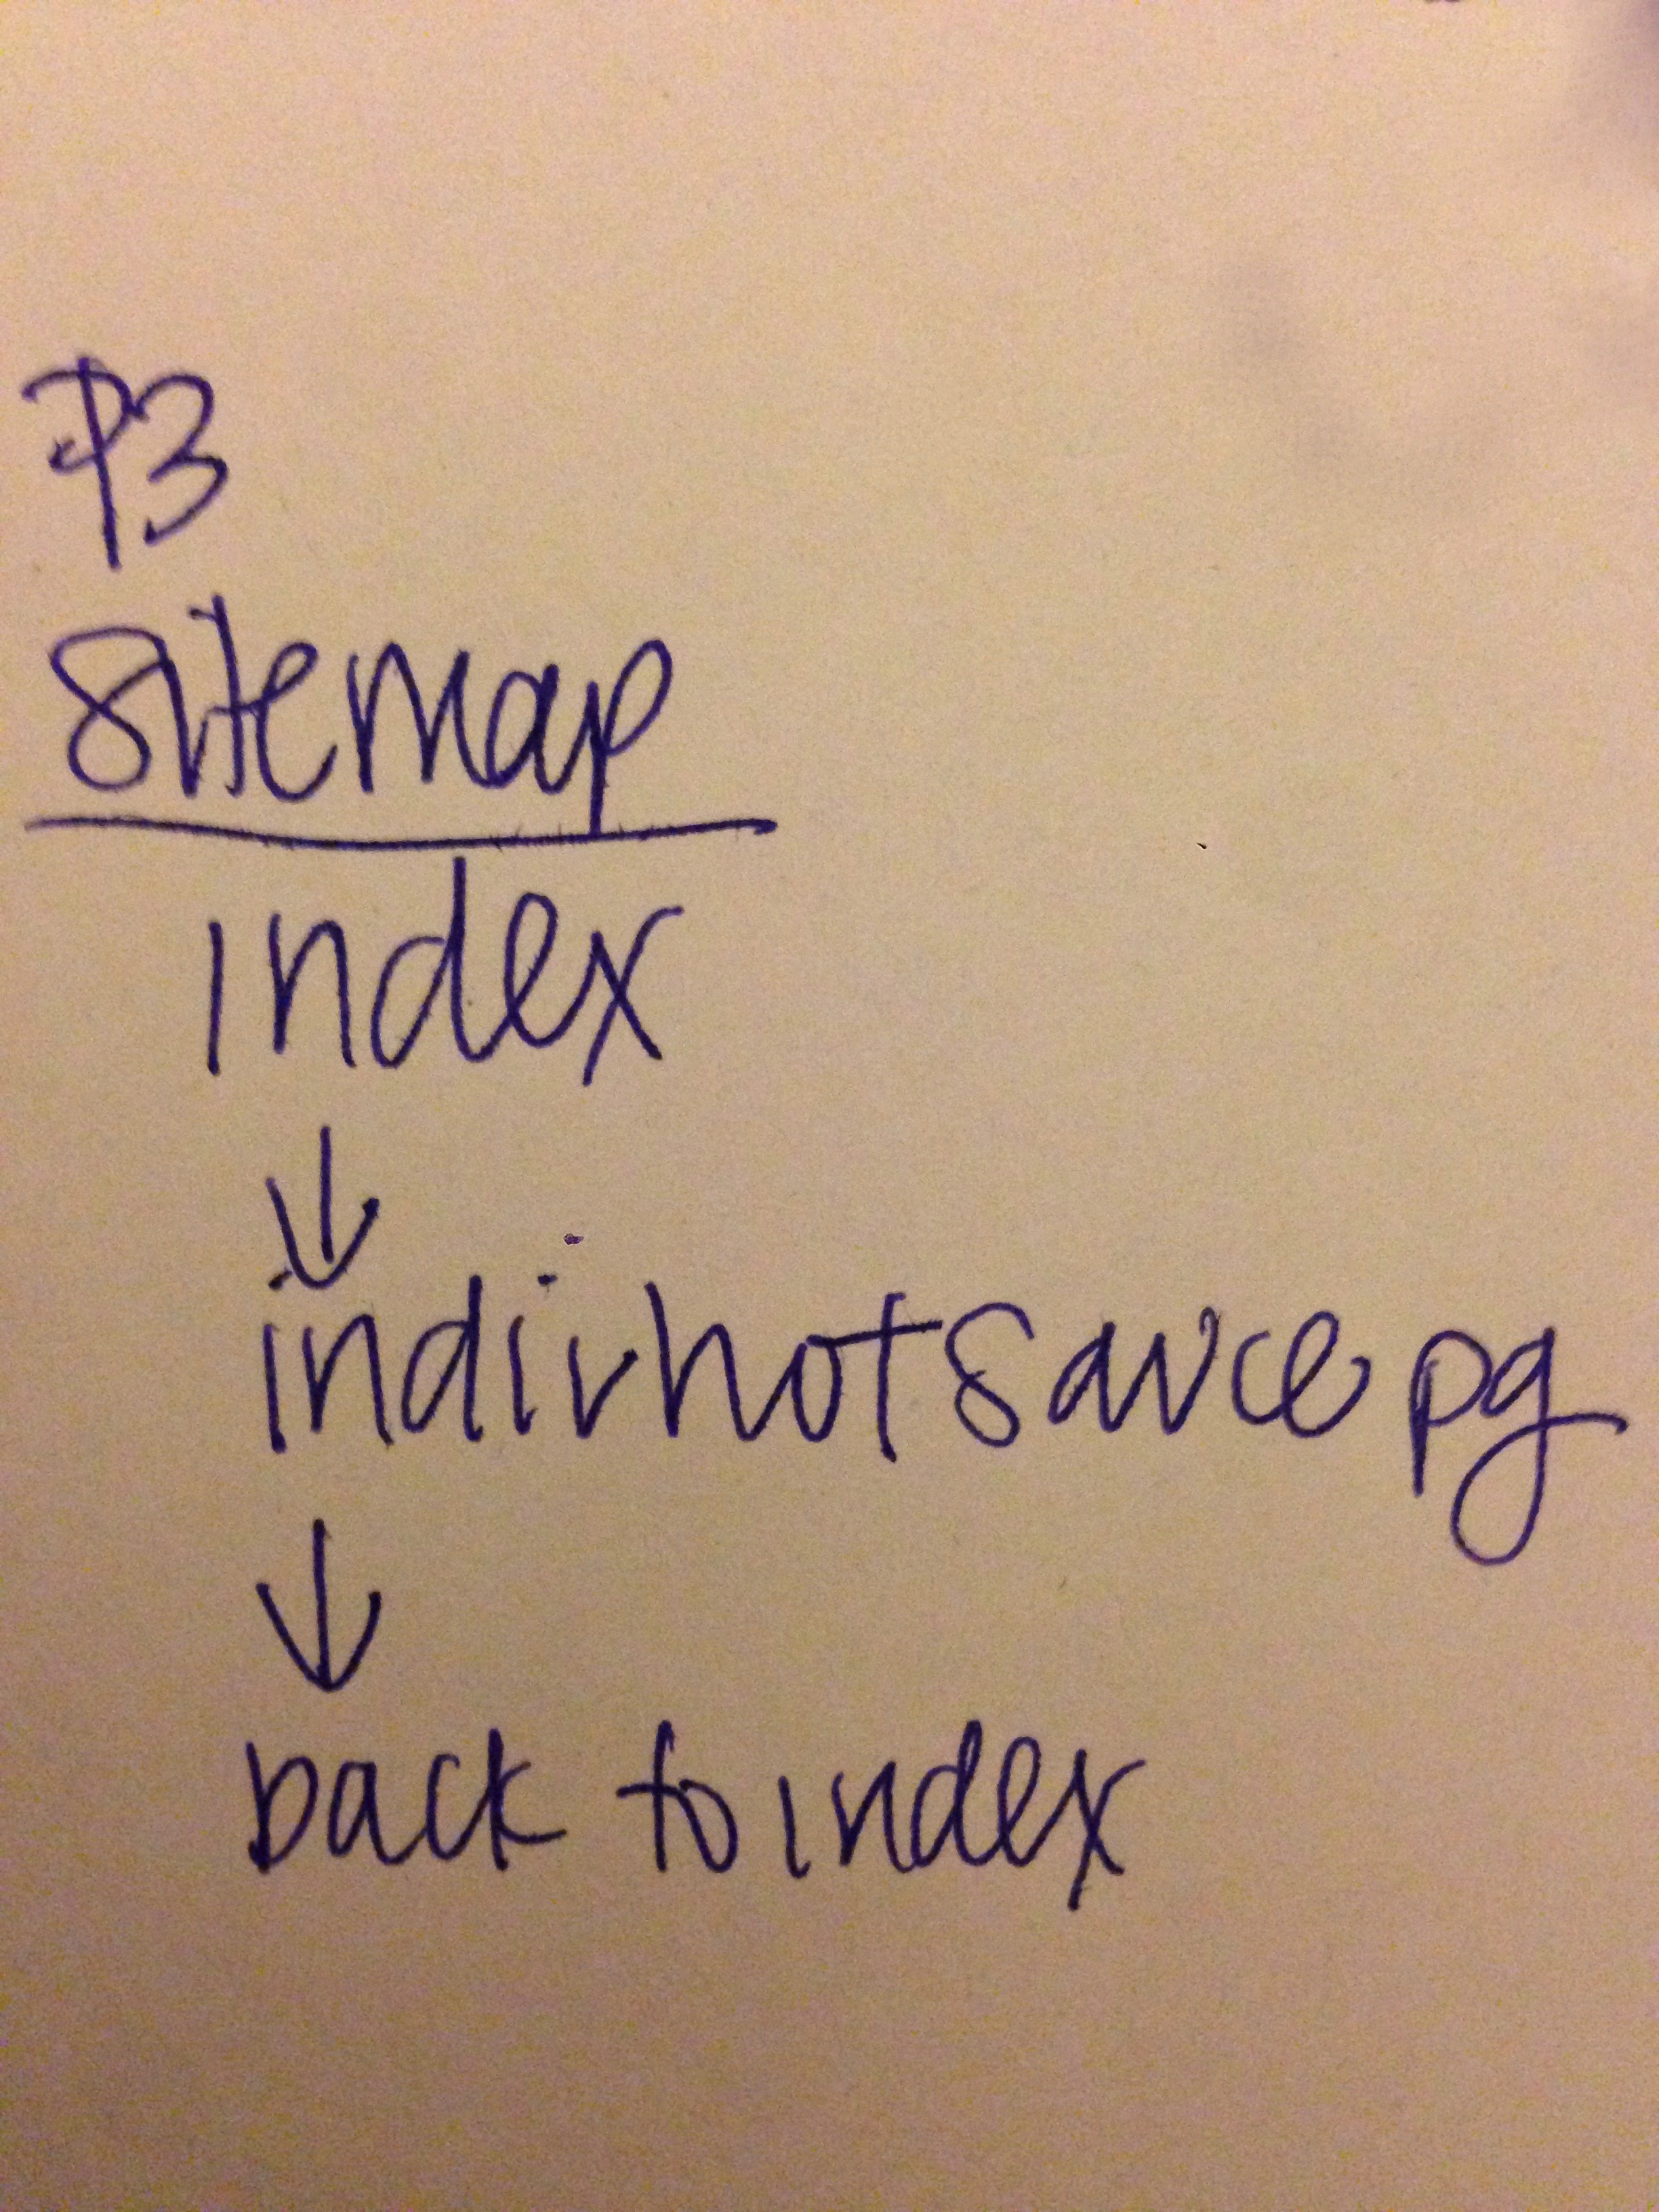 P3
Sitemap
index
↓
indiv hot sauce pg
↓
back to index